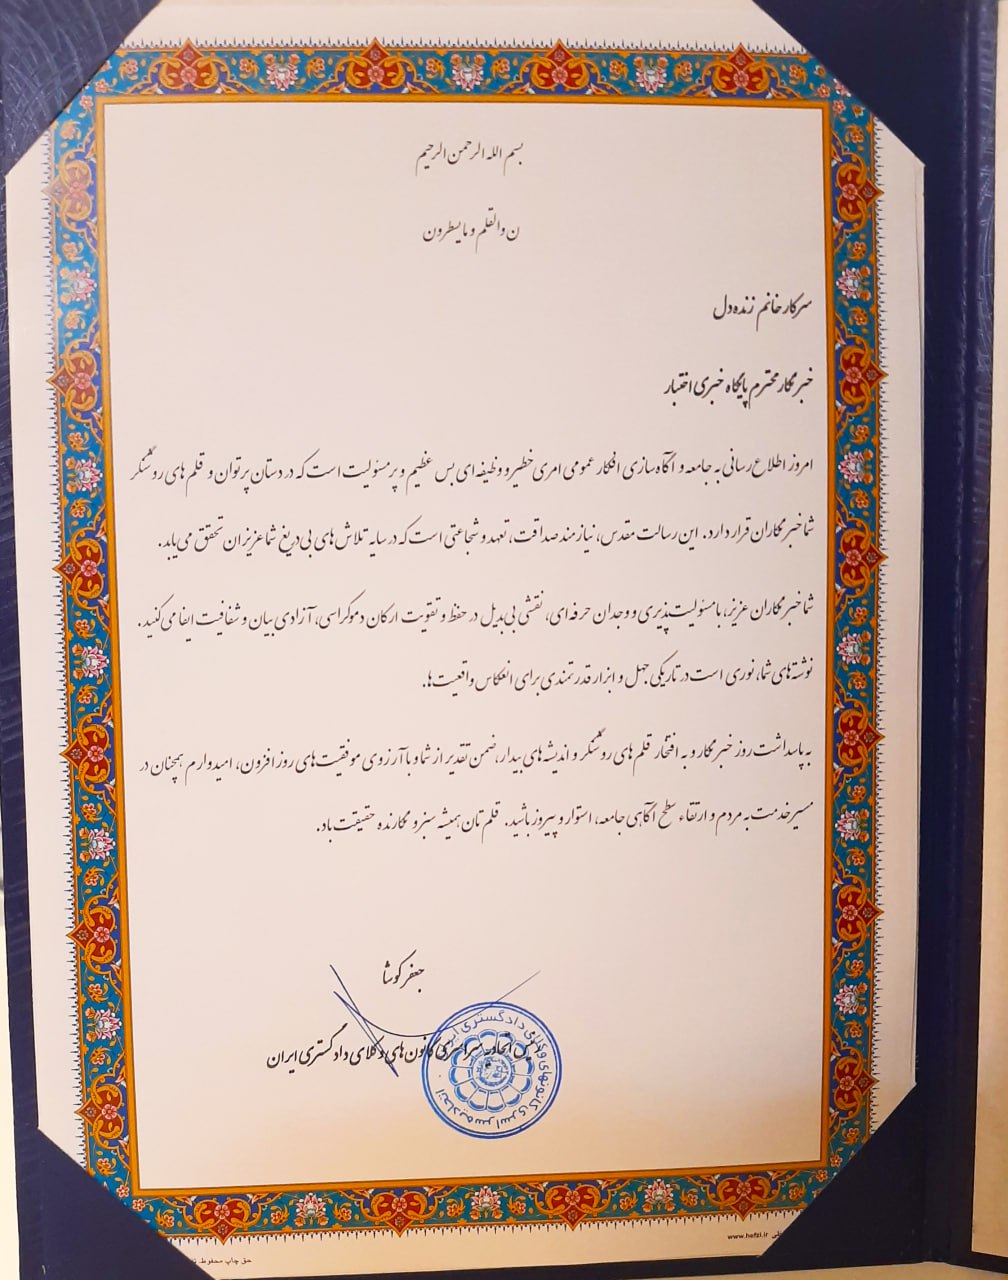 بسم الله الرحمن الرحیم
ن والقلم و ما یسطرون
سرکار خانم زنده دل
خبرنگار محترم پایگاه خبری اختبار
امروز اطلاع رسانی به جامعه و آگاه سازی افکار عمومی امری خطیر و وظیفه ای بس عظیم و پر مسئولیت است که در دستان پرتوان و قلم های روشنگر
شما خبرنگاران قرار دارد. این رسالت مقدس، نیازمند صداقت، تعهد و شجاعتی است که در سایه تلاش های بی دریغ شما عزیزان تحقق می یابد.
شما خبرنگاران عزیز، با مسئولیت پذیری و وجدان حرفه ای، نقشی بی بدیل در حفظ و تقویت ارکان دموکراسی، آزادی بیان و شفافیت ایفا می کنید.
نوشته های شما، نوری است در تاریکی جهل و ابزار قدرتمندی برای انعکاس واقعیت ها.
به پاسداشت روز خبرنگار و به افتخار قلم های روشنگر و اندیشه های بیدار، ضمن تقدیر از شما و با آرزوی موفقیت های روزافزون، امیدوارم همچنان در
مسیر خدمت به مردم و ارتقاء سطح آگاهی جامعه، استوار و پیروز باشید. قلم تان همیشه سبز و نگارنده حقیقت باد.
جعفر کوشا
رئیس اتحادیه سراسری کانون های وکلای دادگستری ایران
اتحادیه سراسری کانونهای وکلای دادگستری ایران
www.hefzi.ir
حق چاپ محفوظ.